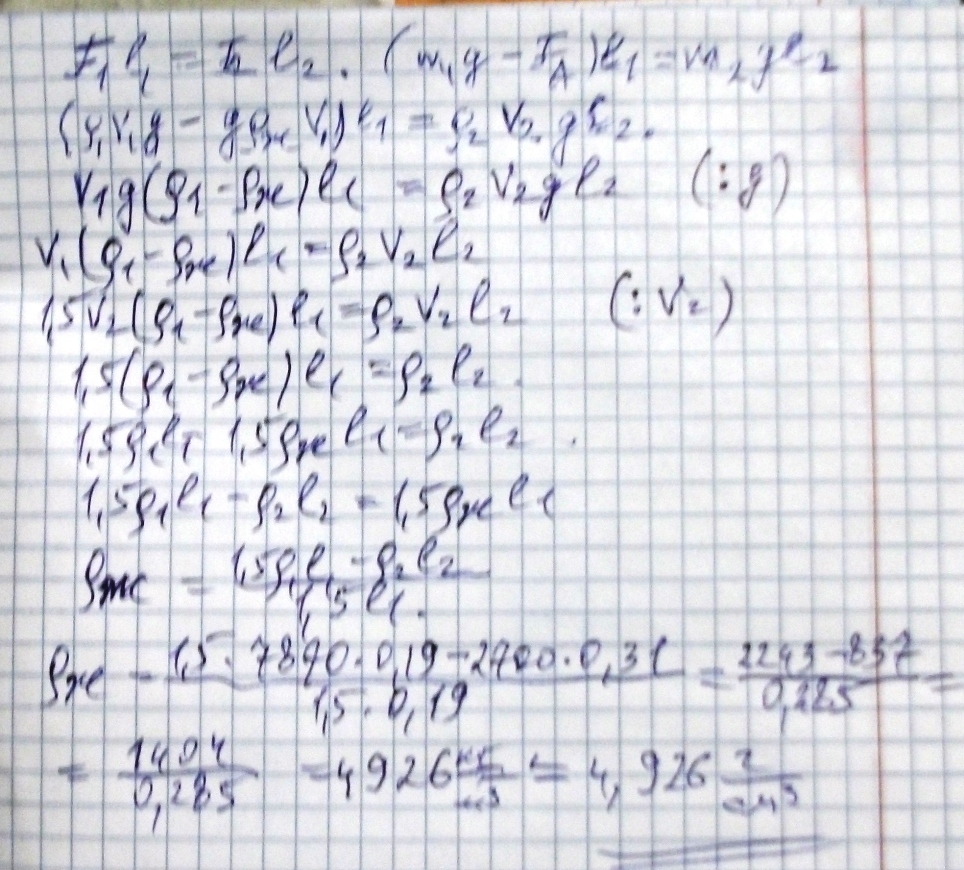 F₁l₁ = F₂l₂. (m₁g − F_A)l₁ = m₂gl₂
(ρ₁V₁g − gρжV₁)l₁ = ρ₂V₂gl₂.
V₁g(ρ₁ − ρж)l₁ = ρ₂V₂gl₂ (:g)
V₁(ρ₁ − ρж)l₁ = ρ₂V₂l₂
1,5V₂(ρ₁ − ρж)l₁ = ρ₂V₂l₂ (:V₂)
1,5(ρ₁ − ρж)l₁ = ρ₂l₂.
1,5ρ₁l₁ − 1,5ρжl₁ = ρ₂l₂.
1,5ρ₁l₁ − ρ₂l₂ = 1,5ρжl₁
ρж = (1,5ρ₁l₁ − ρ₂l₂)/(1,5l₁).
ρж = (1,5·7870·0,19 − 2700·0,31)/(1,5·0,19) = (2243 − 837)/0,285 =
= 1404/0,285 = 4926 кг/м³ = 4,926 г/см³